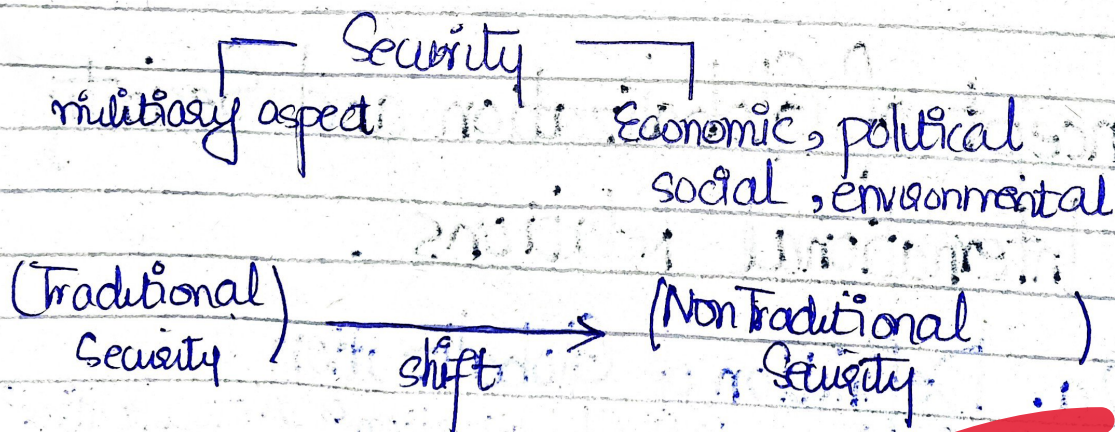 Security
military aspect
Economic, political
social, environmental
(Traditional)
Security
shift
(Non Traditional)
Security